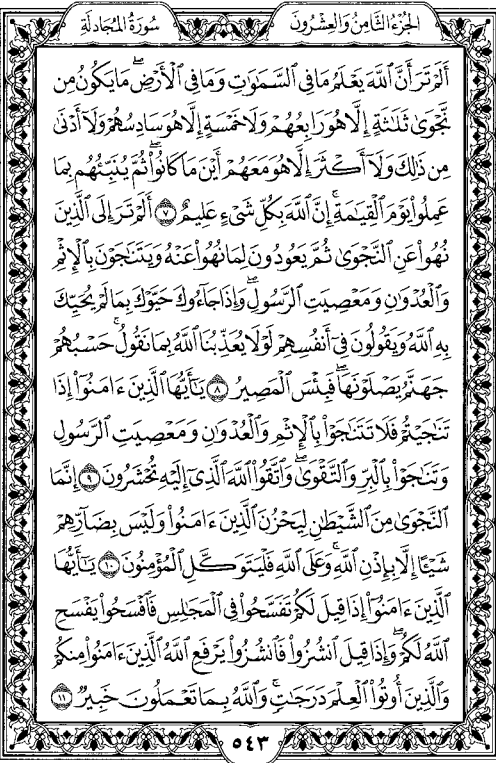 سُورَةُ المُجَادلَةِ
الجُزْءُ الثَّامِنُ وَالعِشْرُونَ
أَلَمْ تَرَ أَنَّ ٱللَّهَ يَعْلَمُ مَا فِي ٱلسَّمَٰوَٰتِ وَمَا فِي ٱلْأَرْضِۖ مَا يَكُونُ مِن
نَّجْوَىٰ ثَلَٰثَةٍ إِلَّا هُوَ رَابِعُهُمْ وَلَا خَمْسَةٍ إِلَّا هُوَ سَادِسُهُمْ وَلَآ أَدْنَىٰ
مِن ذَٰلِكَ وَلَآ أَكْثَرَ إِلَّا هُوَ مَعَهُمْ أَيْنَ مَا كَانُوا۟ۖ ثُمَّ يُنَبِّئُهُم بِمَا
عَمِلُوا۟ يَوْمَ ٱلْقِيَٰمَةِۚ إِنَّ ٱللَّهَ بِكُلِّ شَيْءٍ عَلِيمٌ ٧ أَلَمْ تَرَ إِلَى ٱلَّذِينَ
نُهُوا۟ عَنِ ٱلنَّجْوَىٰ ثُمَّ يَعُودُونَ لِمَا نُهُوا۟ عَنْهُ وَيَتَنَٰجَوْنَ بِٱلْإِثْمِ
وَٱلْعُدْوَٰنِ وَمَعْصِيَتِ ٱلرَّسُولِۖ وَإِذَا جَآءُوكَ حَيَّوْكَ بِمَا لَمْ يُحَيِّكَ
بِهِ ٱللَّهُ وَيَقُولُونَ فِيٓ أَنفُسِهِمْ لَوْلَا يُعَذِّبُنَا ٱللَّهُ بِمَا نَقُولُۚ حَسْبُهُمْ
جَهَنَّمُ يَصْلَوْنَهَاۖ فَبِئْسَ ٱلْمَصِيرُ ٨ يَٰٓأَيُّهَا ٱلَّذِينَ ءَامَنُوٓا۟ إِذَا
تَنَٰجَيْتُمْ فَلَا تَتَنَٰجَوْا۟ بِٱلْإِثْمِ وَٱلْعُدْوَٰنِ وَمَعْصِيَتِ ٱلرَّسُولِ
وَتَنَٰجَوْا۟ بِٱلْبِرِّ وَٱلتَّقْوَىٰۖ وَٱتَّقُوا۟ ٱللَّهَ ٱلَّذِيٓ إِلَيْهِ تُحْشَرُونَ ٩ إِنَّمَا
ٱلنَّجْوَىٰ مِنَ ٱلشَّيْطَٰنِ لِيَحْزُنَ ٱلَّذِينَ ءَامَنُوا۟ وَلَيْسَ بِضَآرِّهِمْ
شَيْـًٔا إِلَّا بِإِذْنِ ٱللَّهِۚ وَعَلَى ٱللَّهِ فَلْيَتَوَكَّلِ ٱلْمُؤْمِنُونَ ١٠ يَٰٓأَيُّهَا
ٱلَّذِينَ ءَامَنُوٓا۟ إِذَا قِيلَ لَكُمْ تَفَسَّحُوا۟ فِي ٱلْمَجَٰلِسِ فَٱفْسَحُوا۟ يَفْسَحِ
ٱللَّهُ لَكُمْۖ وَإِذَا قِيلَ ٱنشُزُوا۟ فَٱنشُزُوا۟ يَرْفَعِ ٱللَّهُ ٱلَّذِينَ ءَامَنُوا۟ مِنكُمْ
وَٱلَّذِينَ أُوتُوا۟ ٱلْعِلْمَ دَرَجَٰتٍۚ وَٱللَّهُ بِمَا تَعْمَلُونَ خَبِيرٌ ١١
٥٤٣